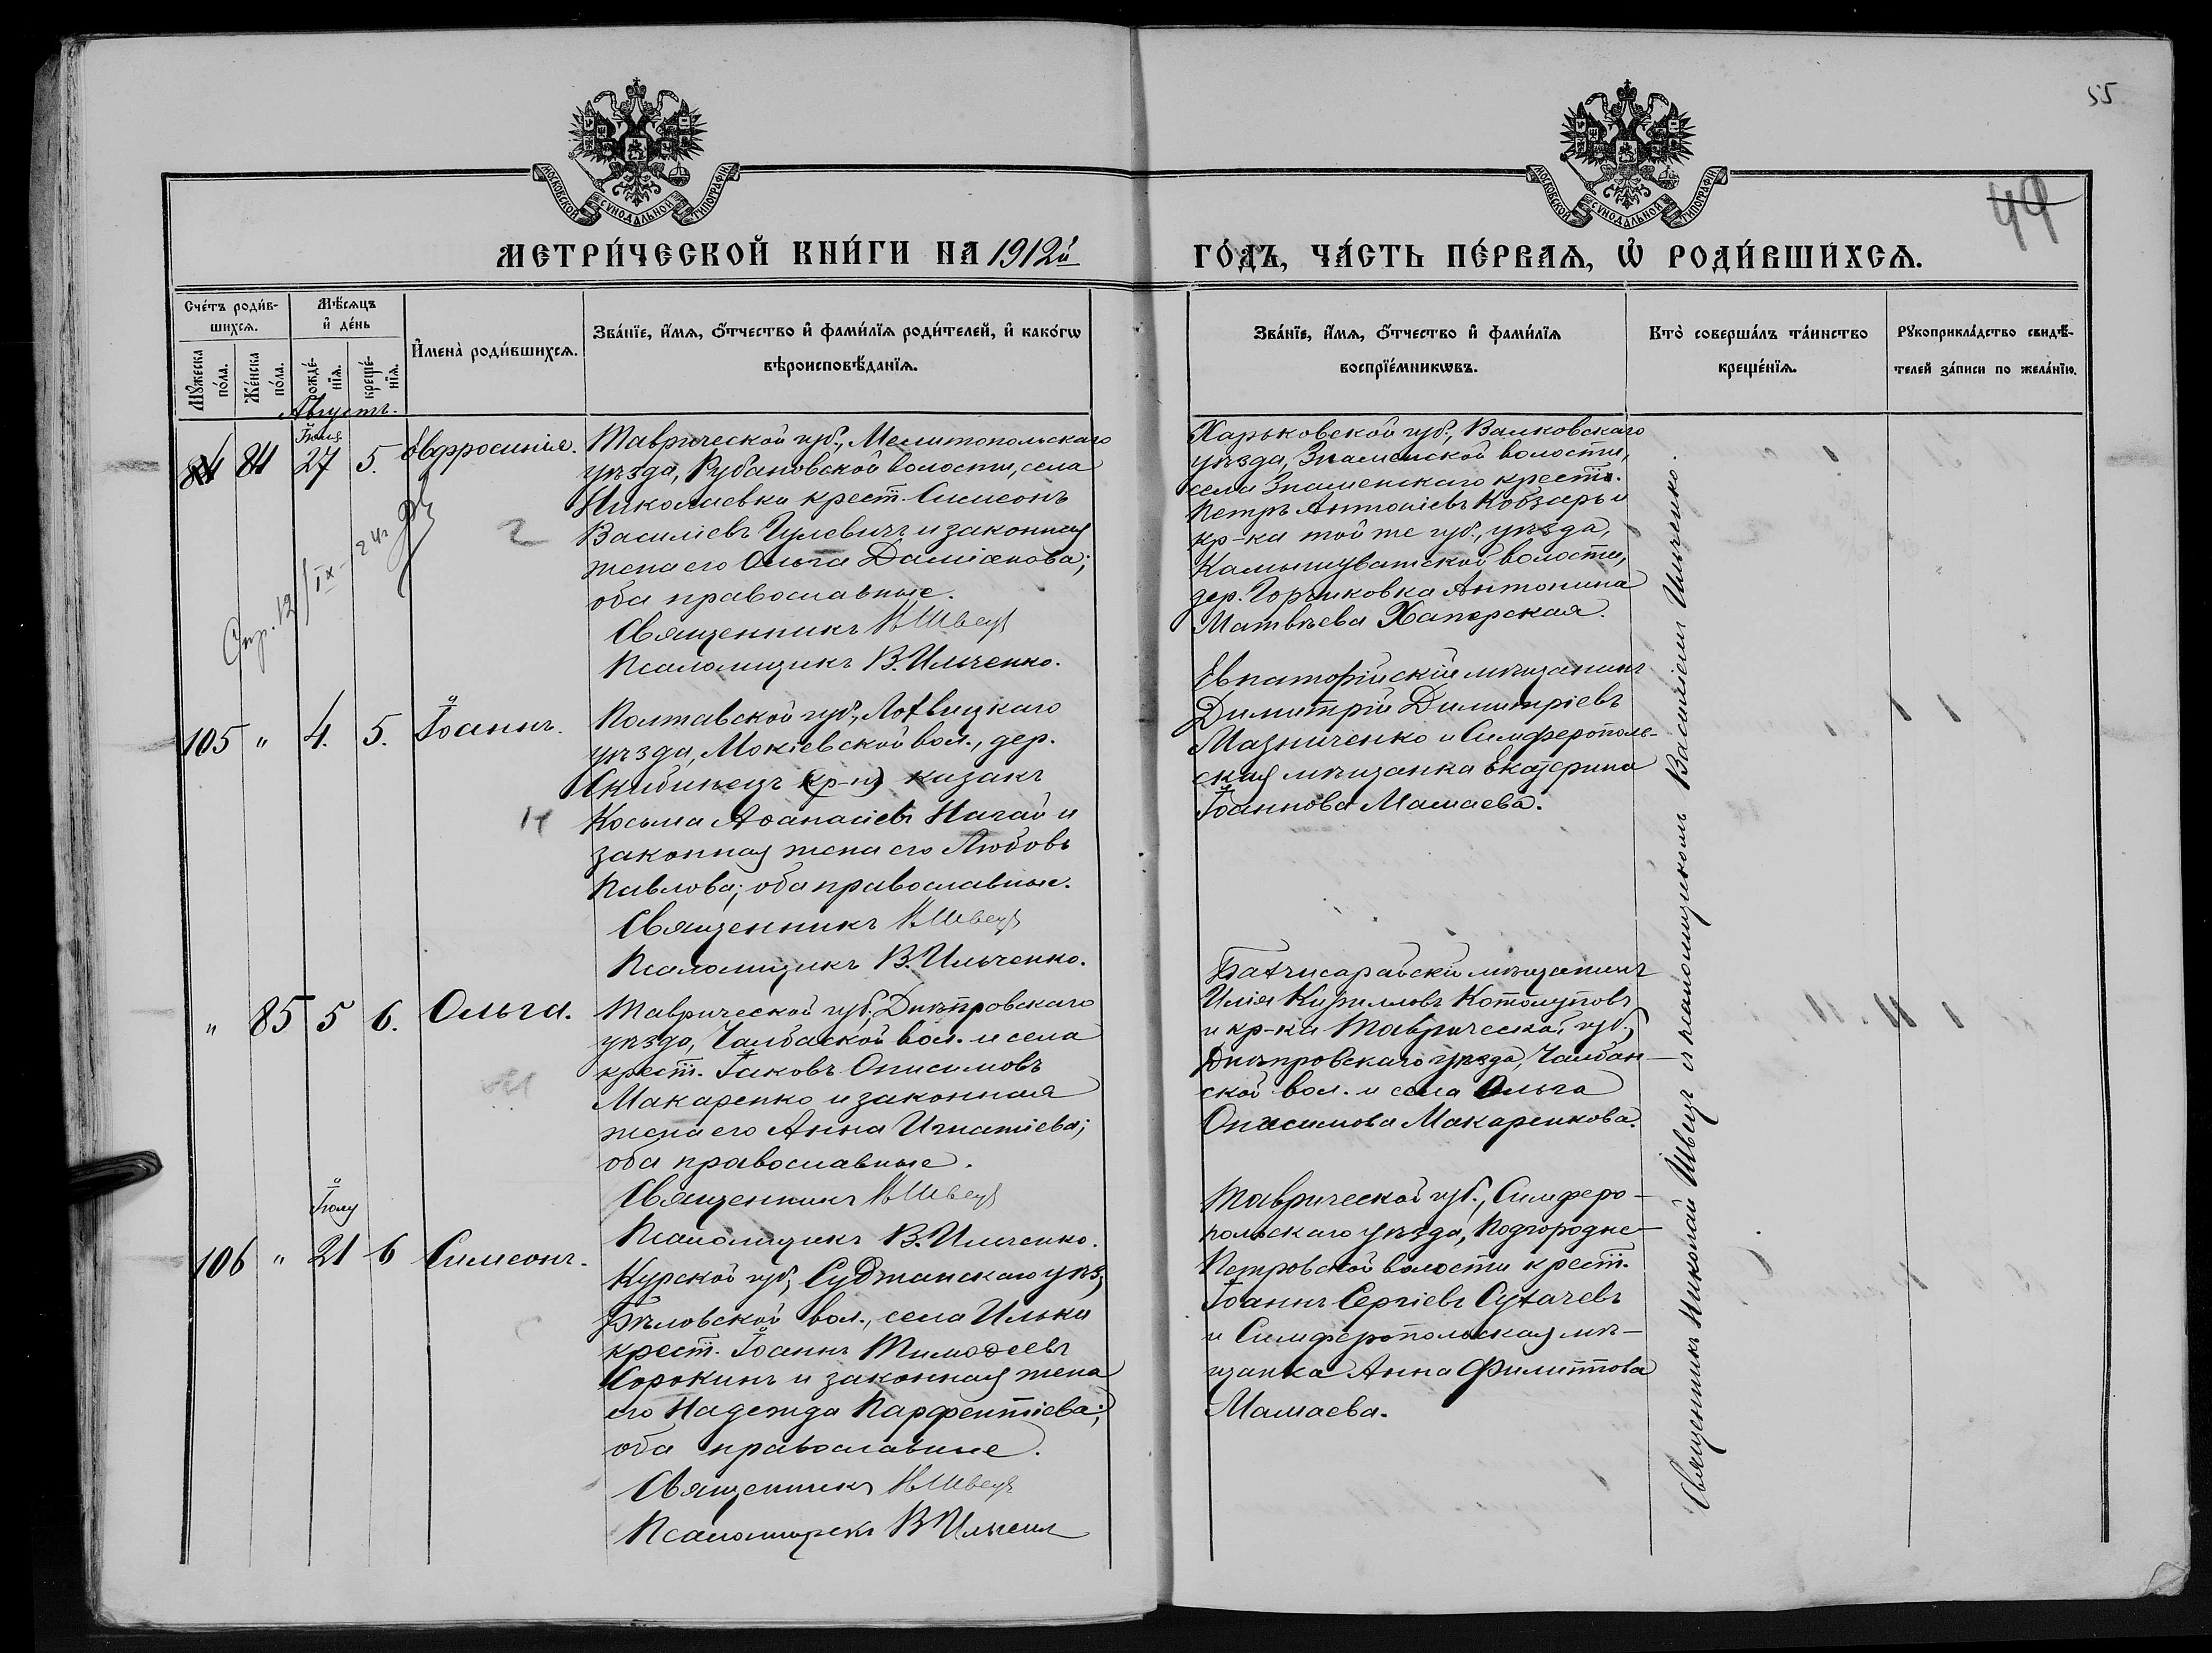 55
49
МОСКОВСКОЙ СѴНОДАЛЬНОЙ ТИПОГРАФІИ
МОСКОВСКОЙ СѴНОДАЛЬНОЙ ТИПОГРАФІИ
МЕТРИ́ЧЕСКОЙ КНИ́ГИ НА 1912й
ГО́ДЪ, ЧА́СТЬ ПЕ́РВАѦ, Ѡ РОДИ́ВШИХСѦ.
Сче́тъ роди́в-
шихсѧ.
Мꙋ́жеска
по́ла.
Же́нска
по́ла.
Мѣ́сѧцъ
и де́нь
рожде́-
нїѧ.
креще́-
нїѧ.
И҆мена̀ роди́вшихсѧ.
Зва́нїе, и҆́мѧ, ѻ҆́тчество и҆ фами́лїѧ роди́телей, и҆ како́гѡ
вѣроисповѣ́данїѧ.
Зва́нїе, и҆́мѧ, ѻ҆́тчество и҆ фами́лїѧ
воспрїе́мникѡвъ.
Кто̀ соверша́лъ та́инство
креще́нїѧ.
Рꙋкоприкла́дство свидѣ́-
телей за́писи по жела́нїю.
Августъ.
84 84 Іюля 27 5. Евфросинія.
Таврической губ., Мелитопольскаго
уѣзда, Рубановской волости, села
Николаевки крест. Симеонъ
Василіевъ Гулевичъ и законная
жена его Ольга Даміанова;
оба православные.
Священникъ Н Швецъ
Псаломщикъ В. Ильченко.
Харьковской губ., Валковскаго
уѣзда, Знаменской волости,
села Знаменскаго крест.
Петръ Антоніевъ Кобзарь и
кр-ка той же губ., уѣзда,
Камышуватской волости,
дер. Горчиковка Антонина
Матвѣева Хаперская.
2
105 " 4. 5. Іоаннъ.
Полтавской губ., Лохвицкаго
уѣзда, Мокіевской вол., дер.
Скибинецъ (кр-нъ) казакъ
Косьма Аѳанасіевъ Нагай и
законная жена его Любовь
Павлова; оба православные.
Священникъ Н Швецъ
Псаломщикъ В. Ильченко.
Евпаторійскій мѣщанинъ
Димитрій Димитріевъ
Мазниченко и Симферополь-
ская мѣщанка Екатерина
Іоаннова Мамаева.
" 85 5 6. Ольга.
Таврической губ. Днѣпровскаго
уѣзда, Чалбаской вол. и села
крест. Іаковъ Онисимовъ
Макаренко и законная
жена его Анна Игнатіева;
оба православные.
Священникъ Н Швецъ
Псаломщикъ В. Ильченко.
Бахчисарайскій мѣщанинъ
Илія Кирилловъ Котолуповъ
и кр-ка Таврической губ.,
Днѣпровскаго уѣзда, Чалбас-
ской вол. и села Ольга
Онисимова Макаренкова.
Іюля
106 " 21 6 Симеонъ.
Курской губ., Суджанскаго уѣз.,
Бѣловской вол., села Ильки
крест. Іоаннъ Тимоѳеевъ
Сорокинъ и законная жена
его Надежда Парфентіева;
оба православные.
Священникъ Н Швецъ
Псаломщикъ В Ильченко
Таврической губ., Симферо-
польскаго уѣзда, Подгородне-
Петровской волости крест.
Іоаннъ Сергіевъ Сухачевъ
и Симферопольская мѣ-
щанка Анна Филиппова
Мамаева.
Священникъ Николай Швецъ съ псаломщикомъ Василіемъ Ильченко.